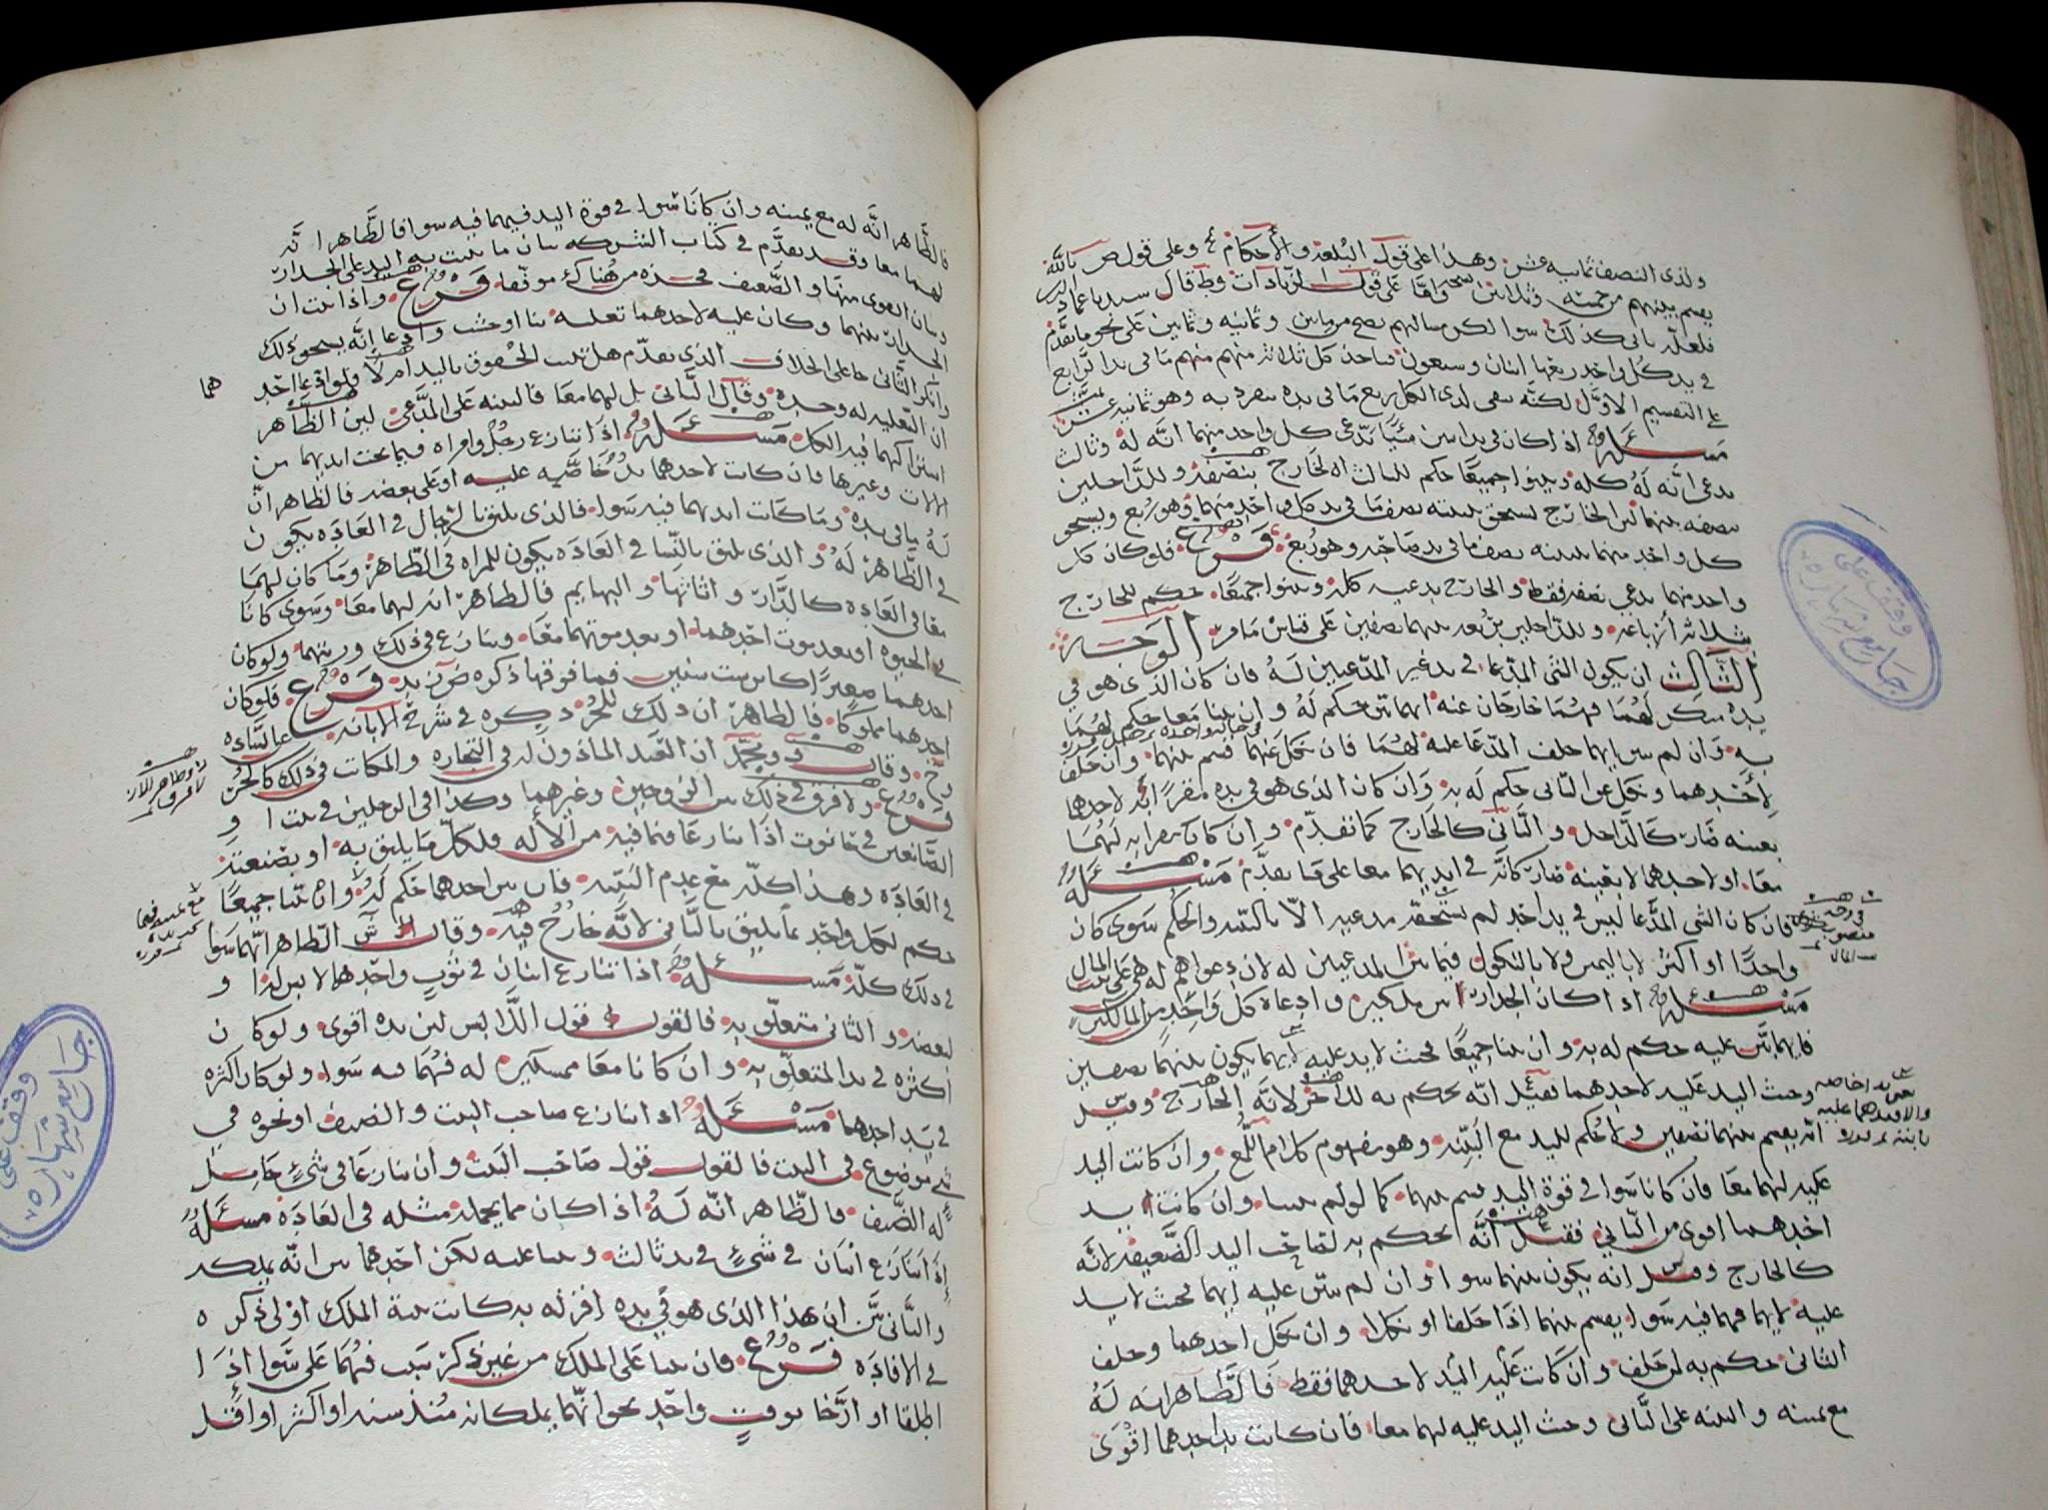 ولذي النصف ثمانيه عشر وهذا على قول البلغة والأحكام وعلى قول ص بالله
يقسم بينهم من خمسه وثلاثين وأما على قول الزيادات وط قال سيدنا عماد الدين
فلعله ياتي كذلك سوا لكن مسالتهم تصح من مايتين وثمانيه وثمانين على نحو ما تقدم
في يد كل واحد ربعها اثنان وسبعون فياخذ كل ثلاثه منهم ما في يد الرابع
على التقسيم الاول لكنه بقي لذي الكل ربع ما في يده ينفرد به وهو ثمانيه عشر
مسئله اذا كان في يد اثنين شيًا يدعي كل واحد منهما انه له وثالث
يدعي انه له كله وبينوا جميعًا حكم للثالث الخارج بنصفه وللداخلين
نصفه بينهما لان الخارج يستحق ببينته نصف ما في يد كل واحد منهما وهو ربع ويستحق
كل واحد منهما ببينته نصف ما في يد صاحبه وهو ربع فرع فلو كان كل
واحد منهما يدعي نصفه فقط والخارج يدعيه كله وبينوا جميعًا حكم للخارج
بثلاثه أرباعه وللداخلين بربعه بينهما نصفين على قياس ما مر الوجه
الثالث ان يكون الشي المدعا في يد غير المدعيين له فان كان الذي هو في
يده منكر لهما فهما خارجان عنه ايهما بين حكم له وان بينا معا حكم لهما
به وان لم يبين ايهما حلف المدعا عليه لهما فان نكل عنهما قسم بينهما وان حلف
لأحدهما ونكل عن الثاني حكم له به وان كان الذي هو في يده مقرًا به لاحدهما
بعينه صار كالداخل والثاني كالخارج كما تقدم وان كان مقرا به لهما
معا او لاحدهما لا بعينه صار كانه في ايديهما معا على ما تقدم مسئله
فان كان الشي المدعا ليس في يد احد لم يستحقه مدعيه الا بالبينه والحكم سوى كان
واحدًا او اكثر لا باليمين ولا بالنكول فيما بين المدعيين له لان دعواهم له هي على بيت المال
مسئله اذا كان الجدار بين ملكين وادعاه كل واحد من المالكين
فايهما بين عليه حكم له به وان بينا جميعًا فحيث لا يد عليه ايهما يكون بينهما نصفين
وحيث اليد عليه لاحدهما فقيل انه يحكم به للاخر لانه الخارج وقيل
انه يقسم بينهما نصفين ولا حكم لليد مع البينه وهو مفهوم كلام اللمع وان كانت اليد
عليه لهما معا فان كانا سوا في قوة اليد قسم بينهما كما لو لم يبينا وان كانت يد
احدهما اقوى من الثاني فقيل انه يحكم به لصاحب اليد الضعيفه لانه
كالخارج وقيل انه يكون بينهما سوا وان لم يبين عليه ايهما فحيث لا يد
عليه لايهما فهما فيه سوا يقسم بينهما اذا حلفا او نكلا وان نكل احدهما وحلف
الثاني حكم به لمن حلف وان كانت عليه اليد لاحدهما فقط فالظاهر انه له
مع يمينه والبينه على الثاني وحيث اليد عليه لهما معا فان كانت يد احدهما اقوى
وقف على
جامع شهاره
فالظاهر انه له مع يمينه وان كانا سوا في قوة اليد فيهما فيه سوا فالظاهر انه
لهما معا وقد تقدم في كتاب الشركه بيان ما يثبت به اليد على الجدار
وبيان القوى منها والضعيف فخذه من هناك موفقا فرع واذا ثبت ان
الجدار بينهما وكان عليه لاحدهما تعليه بنا او خشب وادعا انه يستحق ذلك
وانكر الثاني فعلى الخلاف الذي تقدم هل تثبت الحقوق باليد ام لا ولو ادعا احد
هما
ان التعليه له وحده وقال الثاني بل لهما معا فالبينه على المدعي لان الظاهر
اشتراكهما فيه الكل مسئله اذا تنازع رجل وامراه فيما تحت ايديهما من
الالات وغيرها فان كانت لاحدهما يد خاصه عليه او على بعضه فالظاهر ان
له ما في يده وما كانت ايديهما فيه سوا فالذي يليق بالرجال في العاده يكون
في الظاهر له والذي يليق بالنسا في العاده يكون للمراه في الظاهر وما كان لهما
معا في العاده كالدار واثاثها والبهايم فالظاهر انه لهما معا وسوى كانا
في الحيوه او بعد موت احدهما او بعد موتهما معا وتنازع في ذلك ورثتهما ولو كان
احدهما صغيرًا كابن ست سنين فما فوقها ذكره ض زيد فرع فلو كان
احدهما مملوكا فالظاهر ان ذلك للحر ذكره في شرح الابانه
وح وقال ف ومحمد ان العبد الماذون له في التجاره والمكاتب في ذلك كالحر
فرع ولا فرق في ذلك بين الزوجين وغيرهما وكذا في الرجلين في بيت او
الصانعين في حانوت اذا تنازعا فيما فيه من الأله فلكل ما يليق به او بصنعته
في العاده وهذا كله مع عدم البينه فان بين احدهما حكم له وان بينا جميعًا
حكم لكل واحد بما يليق بالثاني لانه خارج فيه وقال ش الظاهر انهما سوا
في ذلك كله مسئله اذا تنازع اثنان في ثوب واحدهما لابس له او
لبعضه والثاني متعلق به فالقول قول اللابس لان يده اقوى ولو كان
اكثره في يد المتعلق به وان كانا معا ممسكين له فهما فيه سوا ولو كان اكثره
في يد احدهما مسئله اذا تنازع صاحب البيت والضيف او نحوه في
شي موضوع في البيت فالقول قول صاحب البيت وان تنازعا في شيء حامل
له الضيف فالظاهر انه له اذا كان مما يحمله مثله في العاده مسئله
اذا تنازع اثنان في شيء في يد ثالث وبينا عليه لكن احدهما بين انه يملكه
والثاني بين ان هذا الذي هو في يده اقر له به كانت بينة الملك اولى ذكره
في الافاده فرع فان بينا على الملك من غير ذكر سبب فهما على سوا اذا
اطلقا او ارخا بوقت واحد نحو انهما يملكانه منذ سنه او اكثر او اقل
وقف على
جامع شهاره